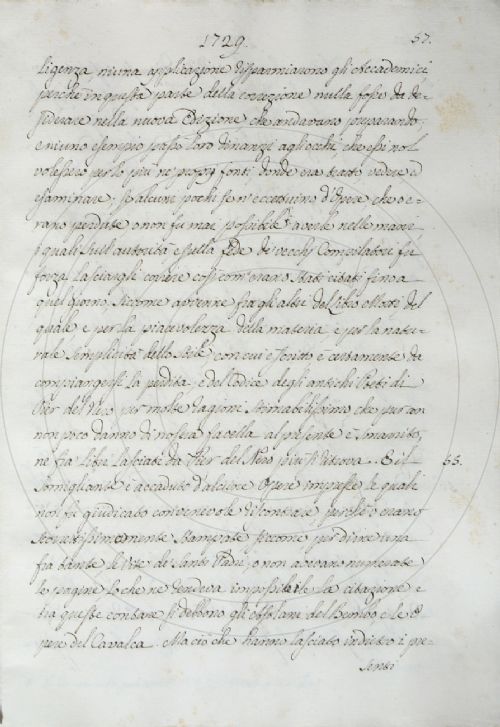 1729. 57.
ligenza niuna applicazione risparmiarono gli Accademici
perchè in questa parte della correzione nulla fosse da de-
siderare nella nuova Edizione che andavano preparando
e niuno esempio passò loro dinanzi agli occhi, che essi nol
volessero per lo più ne proprj fonti, donde era tratto vedere ed
esaminare; se alcuni pochi se n'eccettuino d'Opere che o e-
rano perdute o non fu mai possibile averle nelle mani
i quali sull'autorità e sulla fede de' vecchj Compilatori fu
forza lasciargli correre così com'erano stati citati fino a
quel giorno, siccome avvenne fra gli altri del Libro Moto del
quale e per la piacevolezza della materia e per la natu-
rale semplicità dello stile con cui è scritto è certamente da
compiangersi la perdita, e del Codice degli antichi Poeti di
Pier del Nero per molte cagioni stimabilissimo che pur con
non poco danno di nostra favella al presente è smarrito,
ne fra Libri lasciati da Pier del Nero più si ritrova. E il 55.
somigliante è accaduto d'alcune Opere impresse le quali
non fu giudicato convenevole di contare perchè o erano
scorrettissimamente stampate siccome, per dirne una
fra tante le Vite de Santi Padri, o non avevano numerate
le pagine lo che ne rendeva impossibile la citazione e
tra queste contare si debbono gli Asolani del Bembo, e le O-
pere del Cavalca. Ma ciò che hanno lasciato indietro i pre-
senti